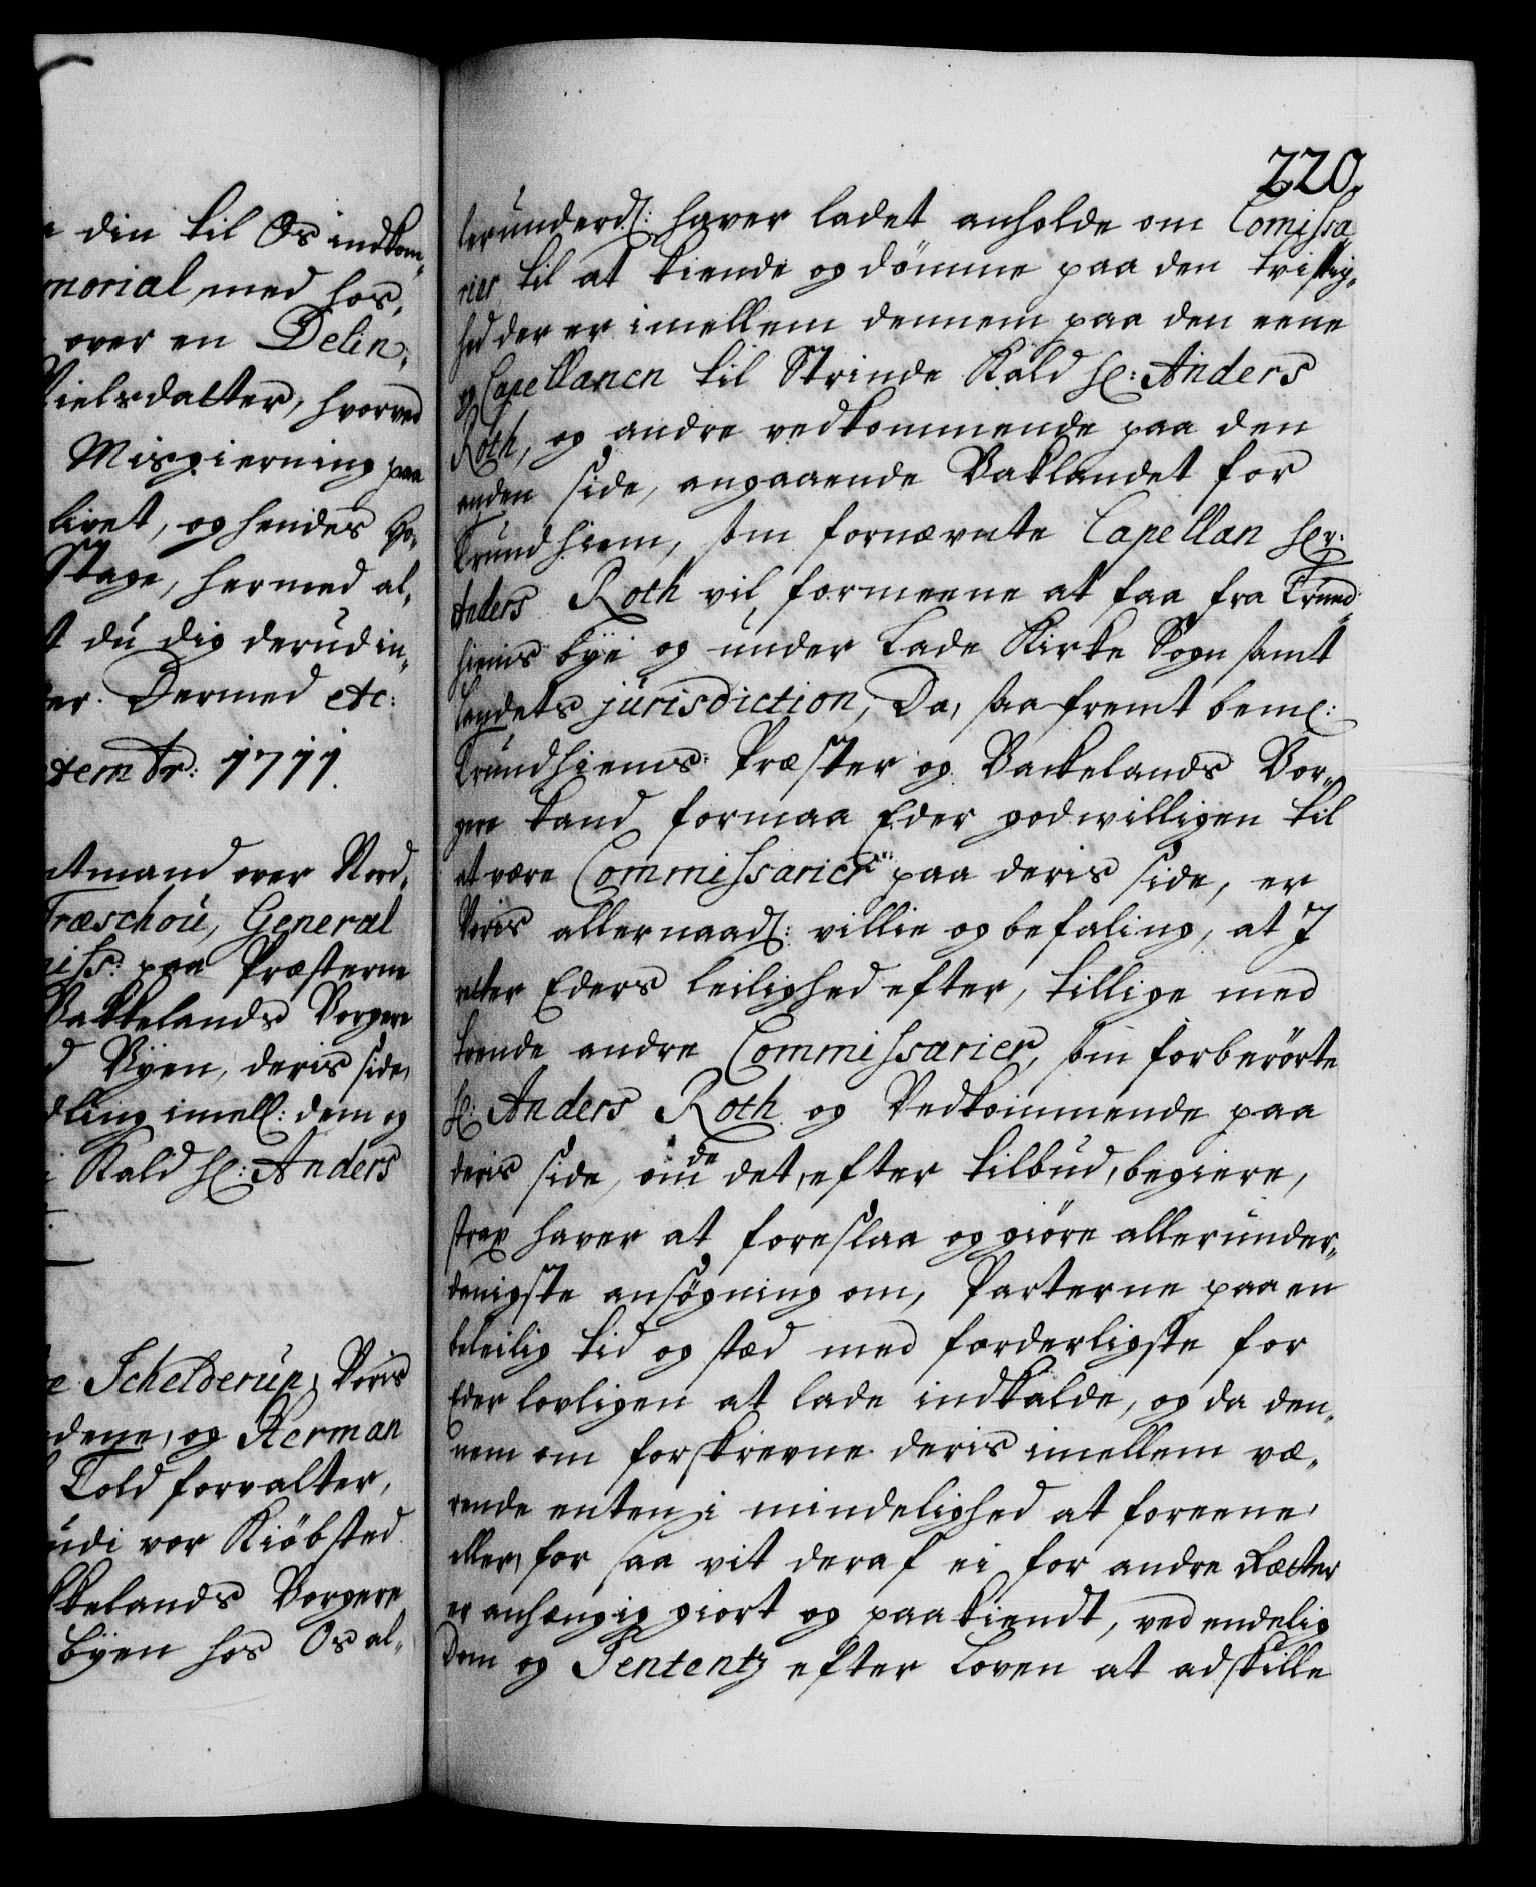 din til Os indkom„
morial, med hos„
over en Delin„
Nielsdatter, hvorved
Misgierning paa
livet, og hendes Ho„
Stage, hermed al„
du dig derud in„
Dermed etc:
1711.
Amtmand over Nord„
Træschou, General
paa Præsterne
Bakkelands Borgere
Byen, deris side,
imell: dem og
Kald Hr: Anders
Schelderup, Voris
og Herman
Told forvalter,
udi vor Kiöbsted
Bakkelands Borgere
byen hos Os al„
220.
lerunderd: haver ladet anholde om Comissa„
rier til at kiende og dömme paa den tvistig„
hed der er imellem dennem paa den eene
og Capellanen til Strinde Kald Hr: Anders
Roth, og andre vedkommende paa den
anden side, angaaende Baklandet for
Trundhiem, som fornævnte Capellan Hr:
Anders Roth vil formeene at faa fra Trund„
hiems bye og under Lade Kirke Sogn samt
Landets jurisdiction, Da, saafremt beml:
Trundhiems Præster og Backelands Bor„
gere kand formaa Eder godwilligen til
at være Commissarier paa deris side, er
Voris allernaads: villie og befaling, at I
retter Eders leilighed efter, tillige med
tvende andre Commissarier, som forberörte
Hr: Anders Roth og Vedkommende paa
deris side, om de det, efter tilbud, begiere,
strax haver at foreslaa og giöre allerunder„
danigste ansögning om, Parterne paa en
beleilig tid og stæd med forderligste for
Eder lovligen at lade indkalde, og da den„
nem om forskrevne deris imellem væ„
rende enten i mindelighed at foreene
eller, for saa vit deraf ei for andre Rætter
er anhængig giort og paakiendt, ved endelig
Dom og Sententz efter Loven at adskille